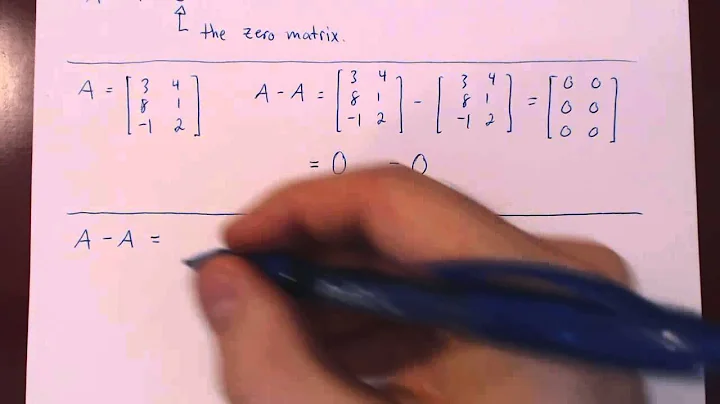 the zero matrix.
A = [3 4 8 1 -1 2] A - A = [3 4 8 1 -1 2] - [3 4 8 1 -1 2] = [0 0 0 0 0 0]
= 0 = 0
A - A =